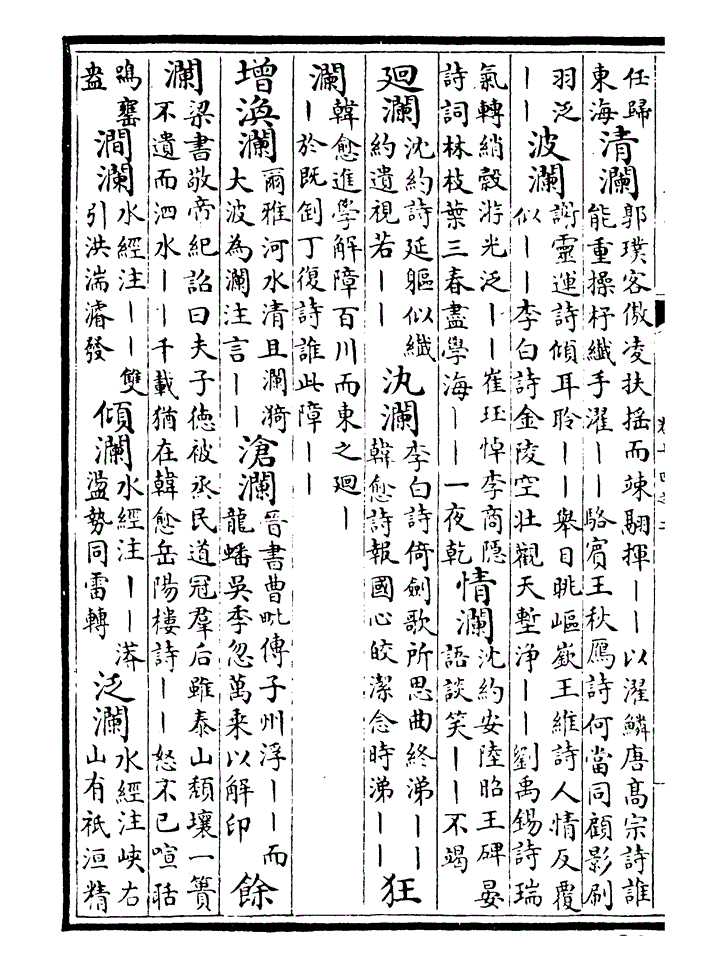 任歸
東海
清瀾
郭璞客傲凌扶搖而竦翮揮丨丨以濯鱗唐高宗詩誰
能重操杼纖手濯丨丨駱賓王秋鴈詩何當同顧影刷
羽泛
丨丨
波瀾
謝靈運詩傾耳聆丨丨舉目眺嶇嶔王維詩人情反覆
似丨丨李白詩金陵空壯觀天塹浄丨丨劉禹錫詩瑞
氣轉綃縠游光泛丨丨崔珏悼李商隱
詩詞林枝葉三春盡學海丨丨一夜乾
情瀾
沈約安陸昭王碑晏
語談笑丨丨不竭
廻瀾
沈約詩延軀似纖
約遺視若丨丨
氿瀾
李白詩倚劍歌所思曲終涕丨丨
韓愈詩報國心皎潔念時涕丨丨
狂
瀾
韓愈進學解障百川而東之廻丨
丨於既倒丁復詩誰此障丨丨
增渙瀾
爾雅河水清且瀾漪
大波為瀾注言丨丨
滄瀾
晉書曹毗傳子州浮丨丨而
龍蟠吳季忽萬乘以解印
餘
瀾
梁書敬帝紀詔曰夫子德被丞民道冠羣后雖泰山頽壞一簣
不遺而泗水丨丨千載猶在韓愈岳陽樓詩丨丨怒不已喧聒
鳴甕
盎
澗瀾
水經注丨丨雙
引洪湍濬發
傾瀾
水經注丨丨漭
盪勢同雷轉
泛瀾
水經注峽右
山有祇洹精